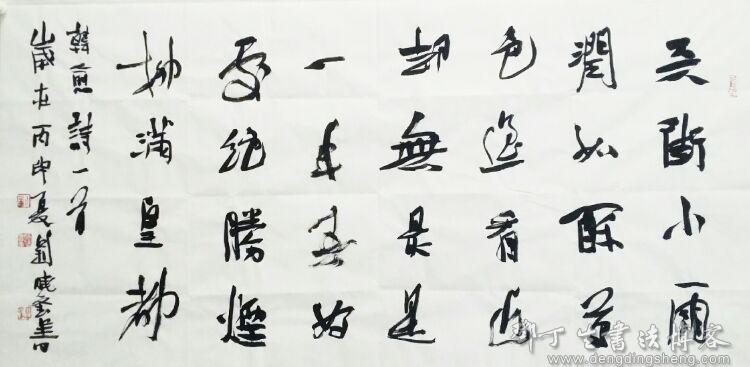 天街小雨
潤如酥草
色遥看近
却無最是
一年春好
處絕勝煙
柳滿皇都
韓愈詩一首
歲在丙申夏劉曉
邓丁生書法博客
www.dengdingsheng.com